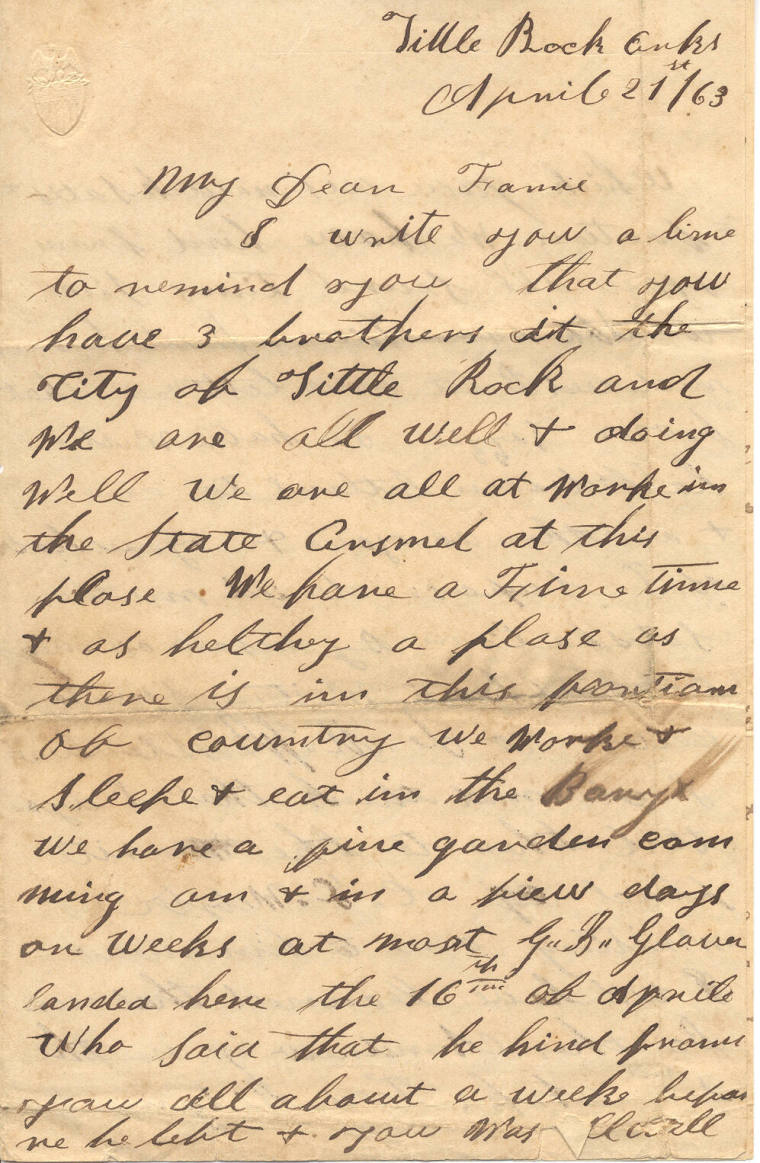 Little Rock Arks
Aprile 21st/63
My Dear Fannie
I write you a line
to remind you that you
have 3 brothers it the
City of Little Rock and
We are all well & doing
Well We are all at Worke in
the State Arsnel at this
plase We have a Fine time
& as helthy a plase as
there is in this portian
of country We Worke &
Sleepe & eat in the
We have a fine garden com
ming an & in a fiew days
or weeks at most G,,B,, Glover
landed here the 16th of Aprile
Who said that he hird from
you all about a weeke befor
re he left & you Was all well